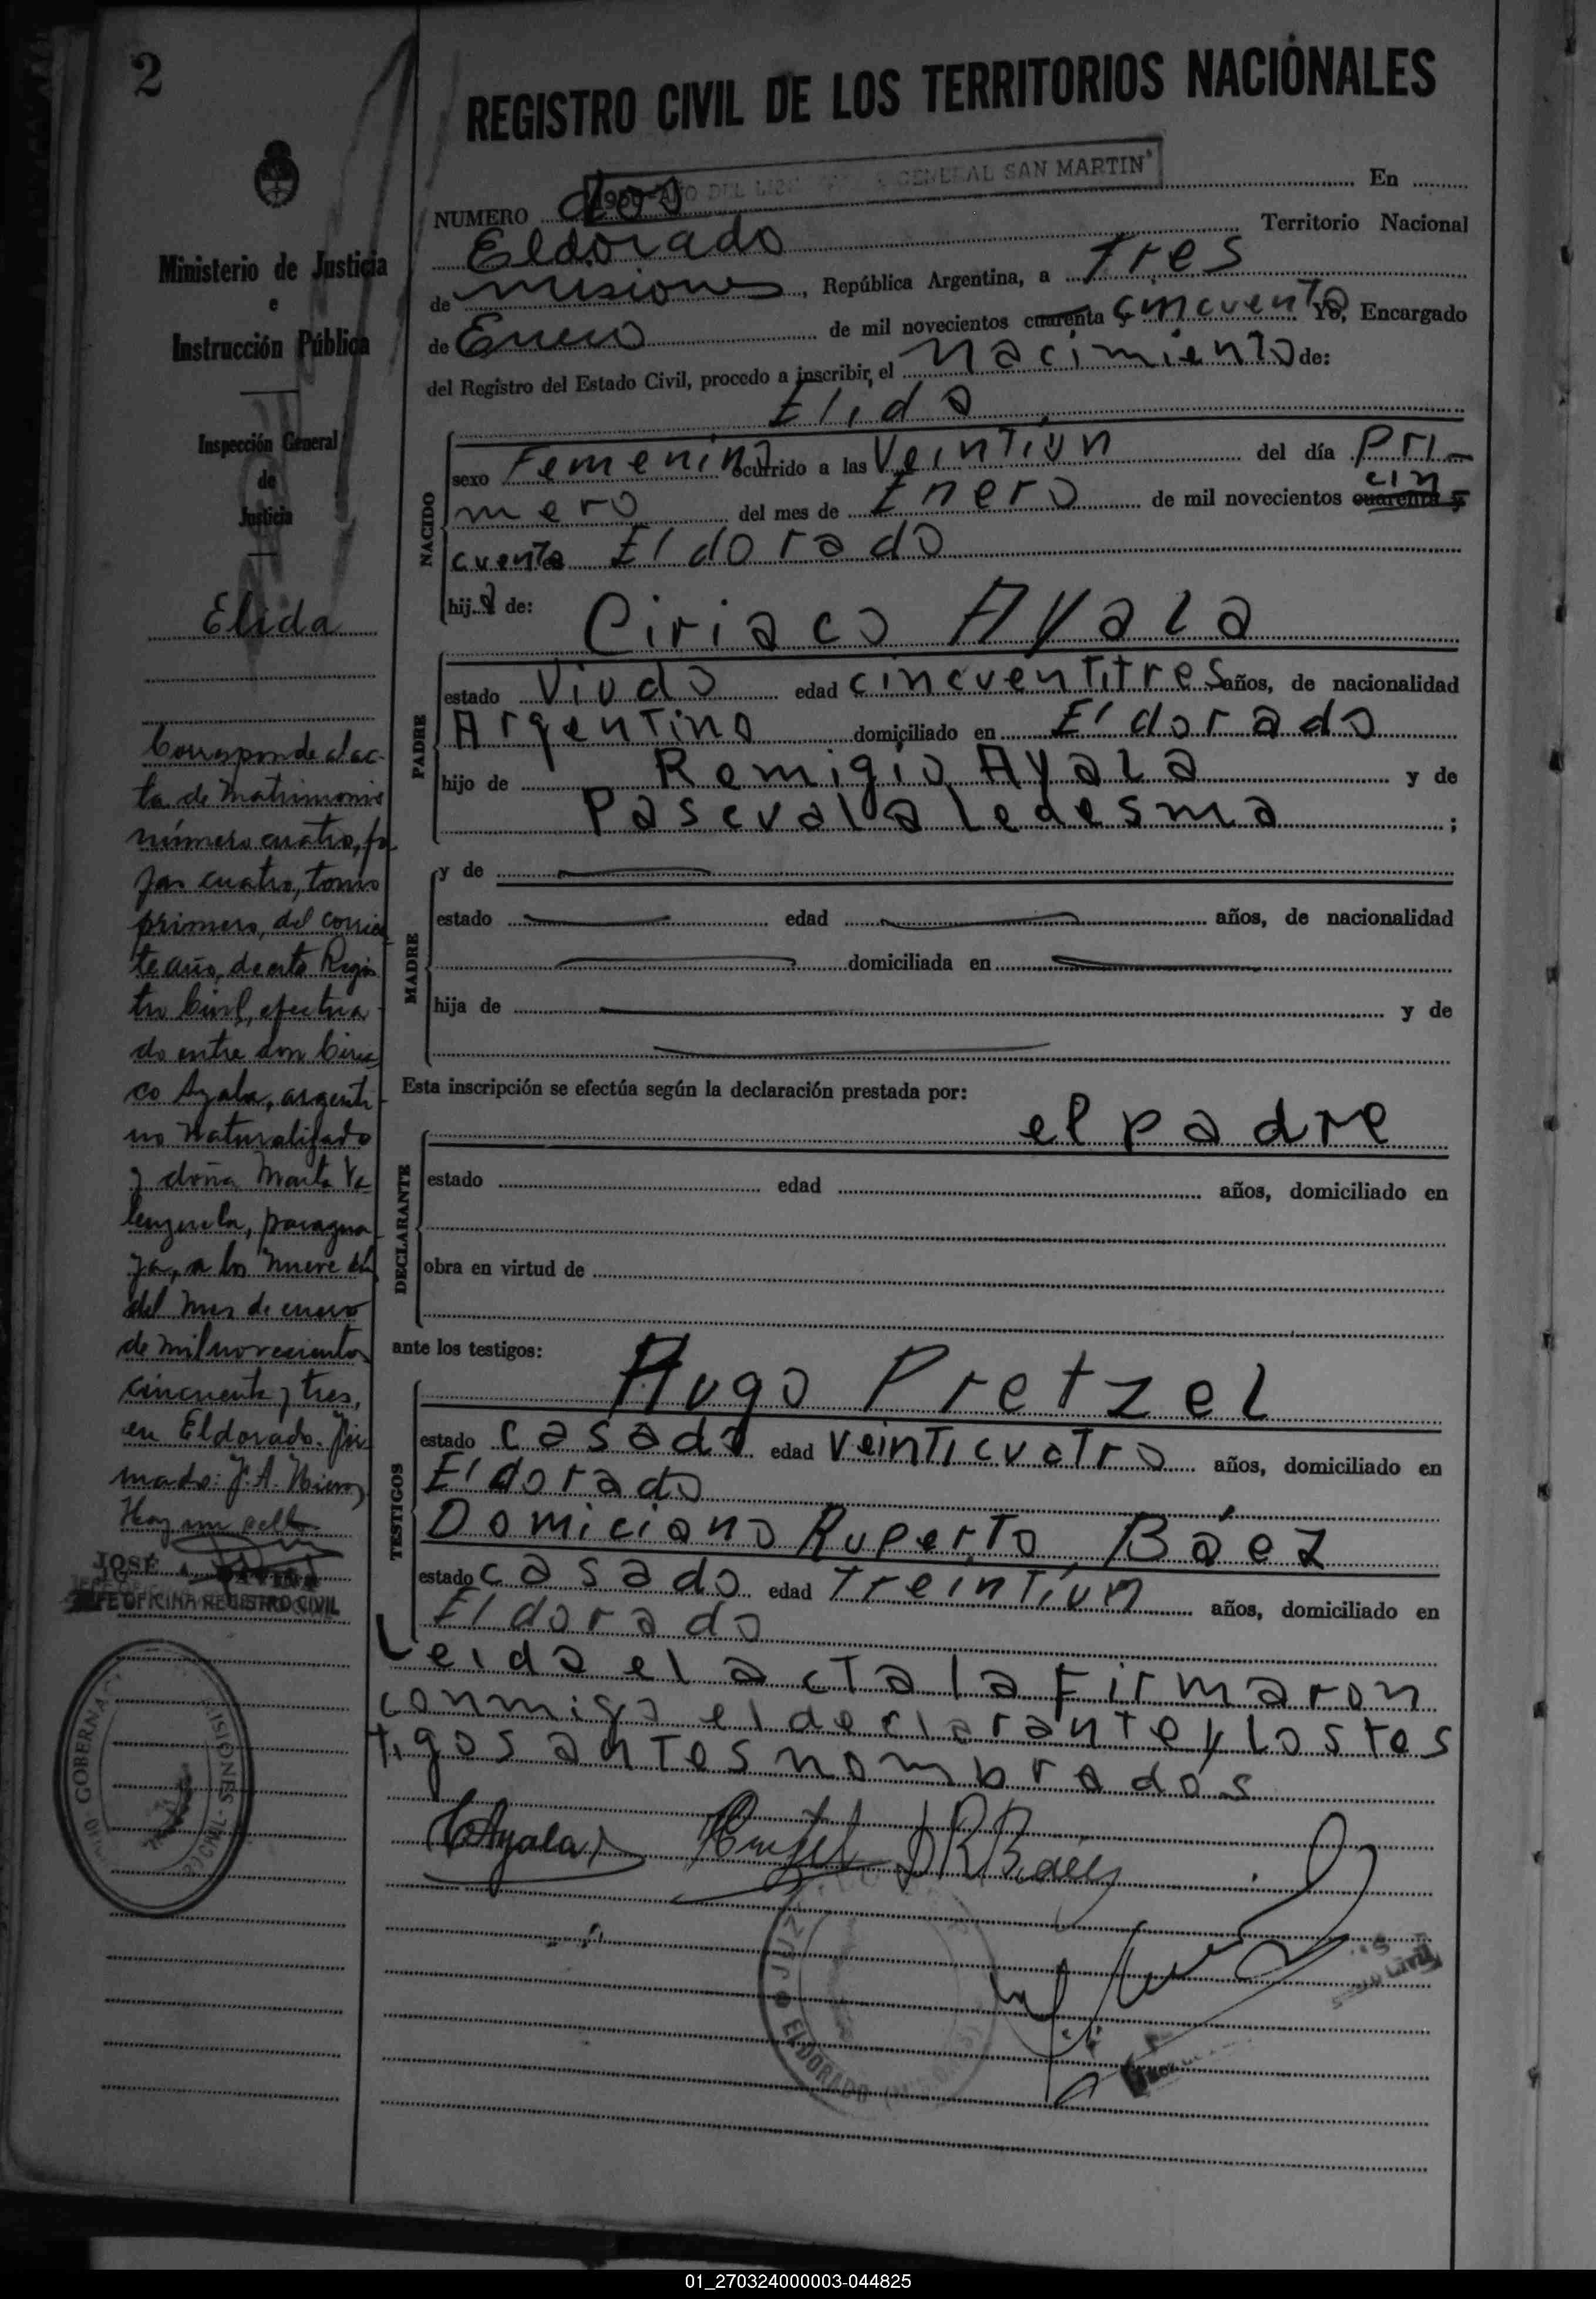 2
REGISTRO CIVIL DE LOS TERRITORIOS NACIONALES
Ministerio de Justicia
e
Instrucción Pública
Inspección General
de
Justicia
Elida
Corresponde al ac-
ta de Matrimonio
número cuatro, fo
jas cuatro, tomo
primero, del corrien
te año, de este Regis
tro Civil, efectua
do entre don Ciria
co Ayala, argenti
no naturalizado
y doña Marta Va
lenzuela, paragua
ya, a los nueve
del mes de enero
de mil novecientos
cincuenta y tres,
en Eldorado. Fir
mado: J. A.
Hay un sello
JOSÉ A.
JEFE OFICINA REGISTRO CIVIL
GOBERNA MISIONES
CIVIL
1950 AÑO DEL GENERAL SAN MARTIN
NUMERO dos En
Eldorado Territorio Nacional
de Misiones, República Argentina, a tres
de Enero de mil novecientos cuarenta y cincuenta Yo, Encargado
del Registro del Estado Civil, procedo a inscribir, el nacimiento de:
Elida
NACIDO
sexo Femenino ocurrido a las Veintiún del día pri-
mero del mes de Enero de mil novecientos cuarenta y cin
cuenta Eldorado
hija de:
Ciriaco Ayala
PADRE
estado Viudo edad cincuentitres años, de nacionalidad
Argentino domiciliado en Eldorado
hijo de Remigio Ayala y de
Pascuala Ledesma ;
MADRE
y de
estado edad años, de nacionalidad
domiciliada en
hija de y de
Esta inscripción se efectúa según la declaración prestada por:
el padre
DECLARANTE
estado edad años, domiciliado en
obra en virtud de
ante los testigos:
TESTIGOS
Hugo Pretzel
estado casado edad veinticuatro años, domiciliado en
Eldorado
Domiciano Ruperto Báez
estado casado edad treintiún años, domiciliado en
Eldorado
Leida el acta la firmaron
conmigo el declarante y los tes
tigos antes nombrados
CAyala DRBáez
JUZ ELDORADO
01_270324000003-044825